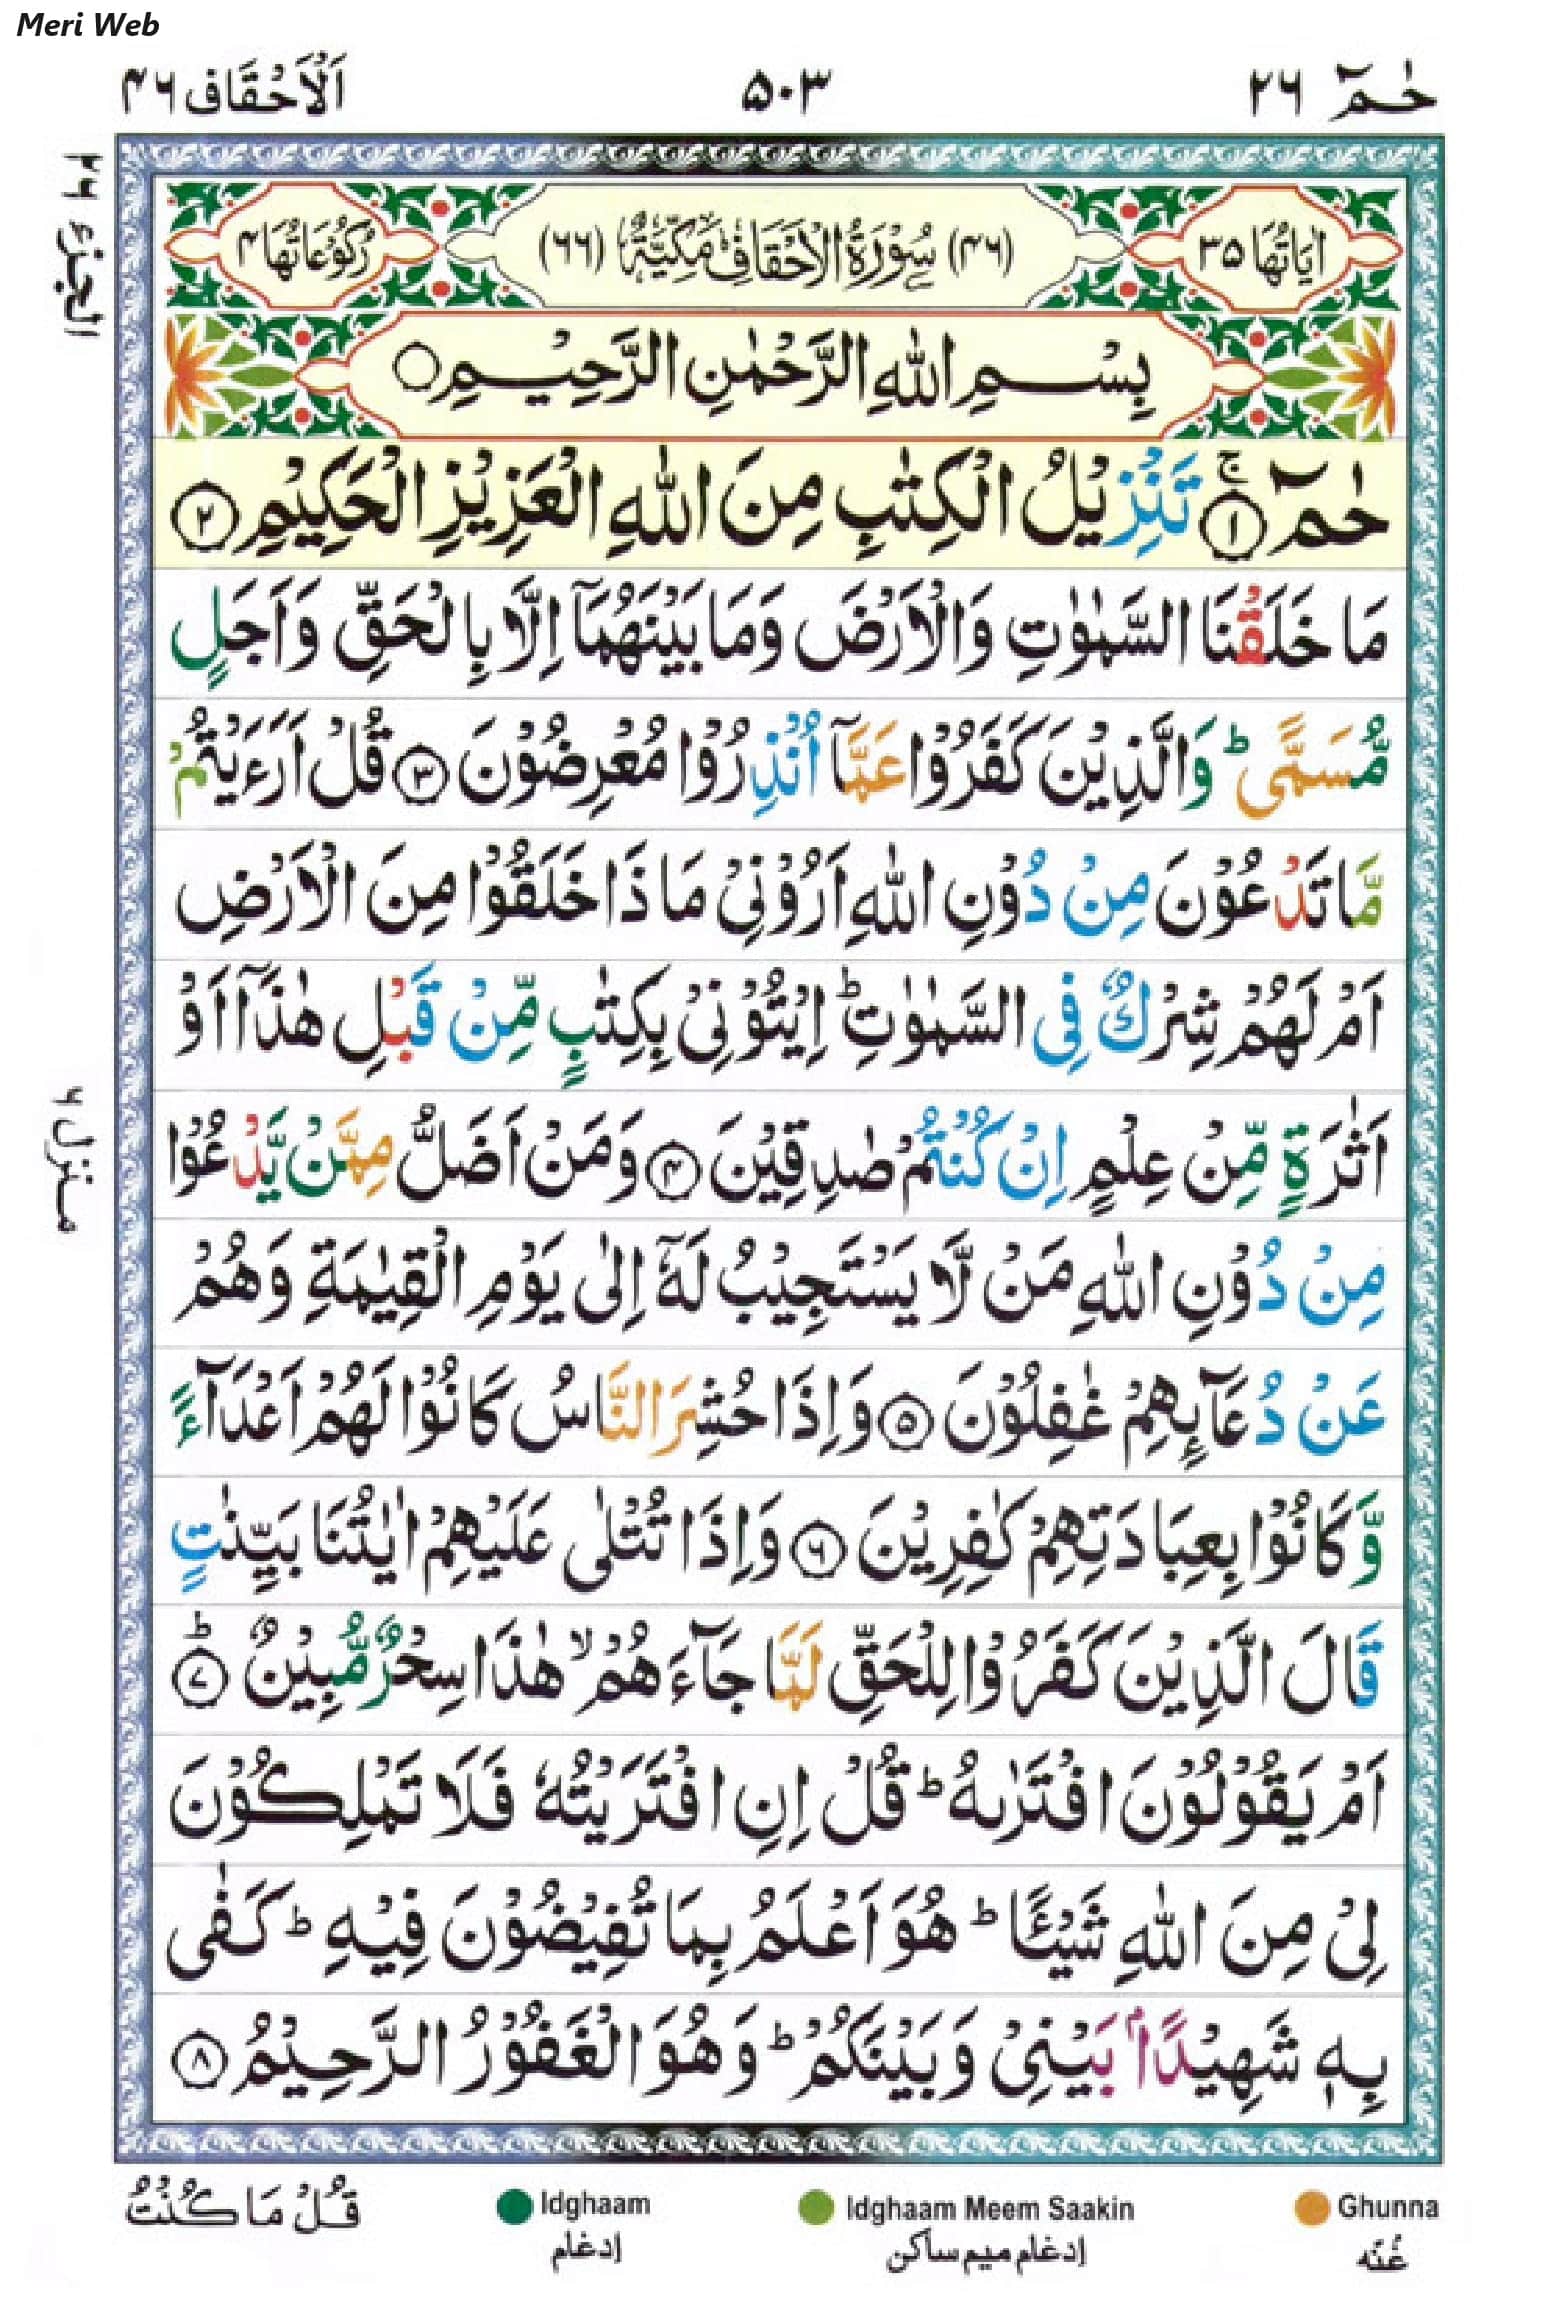 Meri Web
حٰمٓ ٢٦
۵۰۳
اَلْاَحْقَاف ۴۶
الجزء ۲۶
اٰيَاتُهَا ۳۵
(۴۶) سُوْرَةُ الْاَحْقَافِ مَكِّيَّةٌ (۶۶)
رُكُوْعَاتُهَا ۴
بِسْمِ اللّٰهِ الرَّحْمٰنِ الرَّحِيْمِ ○
حٰمٓ ۚ ﴿۱﴾ تَنْزِيْلُ الْكِتٰبِ مِنَ اللّٰهِ الْعَزِيْزِ الْحَكِيْمِ ﴿۲﴾
مَا خَلَقْنَا السَّمٰوٰتِ وَالْاَرْضَ وَمَا بَيْنَهُمَآ اِلَّا بِالْحَقِّ وَاَجَلٍ
مُّسَمًّى ؕ وَالَّذِيْنَ كَفَرُوْا عَمَّآ اُنْذِرُوْا مُعْرِضُوْنَ ﴿۳﴾ قُلْ اَرَءَيْتُمْ
مَّا تَدْعُوْنَ مِنْ دُوْنِ اللّٰهِ اَرُوْنِيْ مَاذَا خَلَقُوْا مِنَ الْاَرْضِ
اَمْ لَهُمْ شِرْكٌ فِى السَّمٰوٰتِ ؕ اِيْتُوْنِيْ بِكِتٰبٍ مِّنْ قَبْلِ هٰذَآ اَوْ
اَثٰرَةٍ مِّنْ عِلْمٍ اِنْ كُنْتُمْ صٰدِقِيْنَ ﴿۴﴾ وَمَنْ اَضَلُّ مِمَّنْ يَّدْعُوْا
منزل ۶
مِنْ دُوْنِ اللّٰهِ مَنْ لَّا يَسْتَجِيْبُ لَهٗٓ اِلٰى يَوْمِ الْقِيٰمَةِ وَهُمْ
عَنْ دُعَآىِٕهِمْ غٰفِلُوْنَ ﴿۵﴾ وَاِذَا حُشِرَ النَّاسُ كَانُوْا لَهُمْ اَعْدَآءً
وَّكَانُوْا بِعِبَادَتِهِمْ كٰفِرِيْنَ ﴿۶﴾ وَاِذَا تُتْلٰى عَلَيْهِمْ اٰيٰتُنَا بَيِّنٰتٍ
قَالَ الَّذِيْنَ كَفَرُوْا لِلْحَقِّ لَمَّا جَآءَهُمْ ۙ هٰذَا سِحْرٌ مُّبِيْنٌ ؕ ﴿۷﴾
اَمْ يَقُوْلُوْنَ افْتَرٰىهُ ؕ قُلْ اِنِ افْتَرَيْتُهٗ فَلَا تَمْلِكُوْنَ
لِيْ مِنَ اللّٰهِ شَيْـًٔا ؕ هُوَ اَعْلَمُ بِمَا تُفِيْضُوْنَ فِيْهِ ؕ كَفٰى
بِهٖ شَهِيْدًۢا بَيْنِيْ وَبَيْنَكُمْ ؕ وَهُوَ الْغَفُوْرُ الرَّحِيْمُ ﴿۸﴾
قُلْ مَا كُنْتُ
Idghaam
ادغام
Idghaam Meem Saakin
ادغام میم ساکن
Ghunna
غُنّه